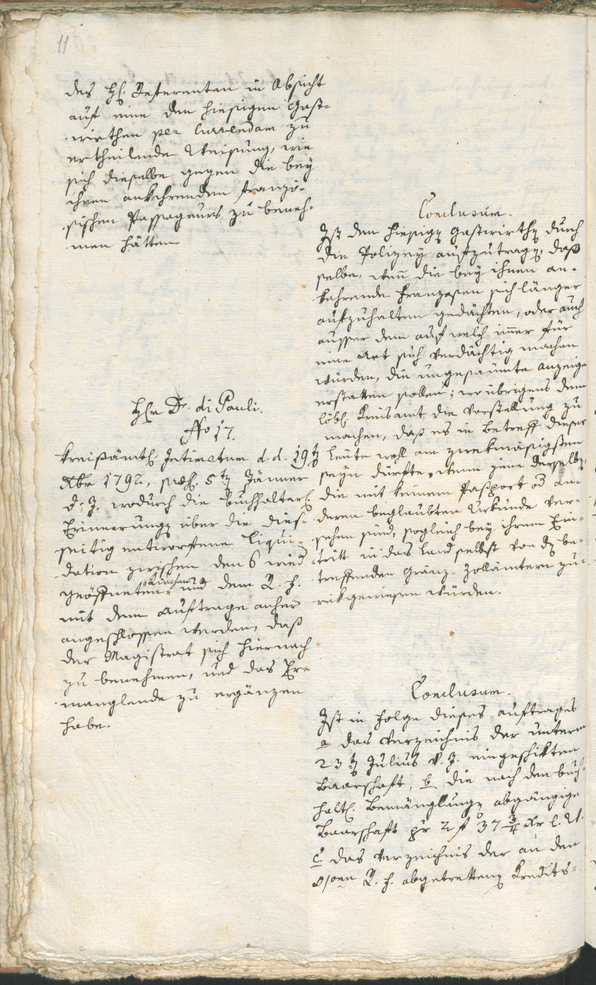 11
des H: Referenten in Absicht
auf eine den hiesigen Gast-
wirthen per Currendam zu
ertheilende Weisung, wie
sich dieselbe gegen die bey
ihnen ankehrenden französi-
sischen Passageurs zu beneh-
men hätten
Conclusum.
Ist den hiesigen Gastwirthen durch
die Polizey aufzutragen, daß
selbe, wenn die bey ihnen an-
kehrende Franzosen sich länger
aufzuhalten gedächten, oder auch
ausser dem auf welch immer für
eine Art sich verdächtig machen
würden, die ungesäumte Anzeige
erstatten sollen; wo übrigens dem
löbl. Kreisamt die Vorstellung zu
machen, daß es in Betreff dieser
Leute wohl am zweckmäsigsten
seyn dürfte, wenn jene derselben,
die mit keinem Passport od. an-
deren beglaubten Urkunde ver-
sehen sind, sogleich bey ihrem Ein-
tritt in das Land selbst von den be-
treffenden Gränz-Zollämtern zu-
rükgewiesen würden.
H. Dr. di Pauli.
No 17.
Kreisämtl. Intimatum d. d. 19ten
Xbr 1792, 5ten Jänner
d. J. wodurch die Buchhalter.
Erinnerungen über die dies-
seitig entworfene Liqui-
dation zwischen den 6 wied
geöffneten und dem R. h.
mit dem Auftrage anher
angeschlossen werden, daß
der Magistrat sich hiernach
zu benehmen, und das Er-
manglende zu ergänzen
habe.
Conclusum.
Ist in Folge dieses Auftrages
a das Verzeichnis der unterm
23ten Julius v. J. eingeschikten
Baarschaft, b die nach den buch-
halt. Bemänglungen abgängige
Baarschaft pr 2 f 37
c das Verzeichnis der an den
R. h. abgetrettenen Kredits-